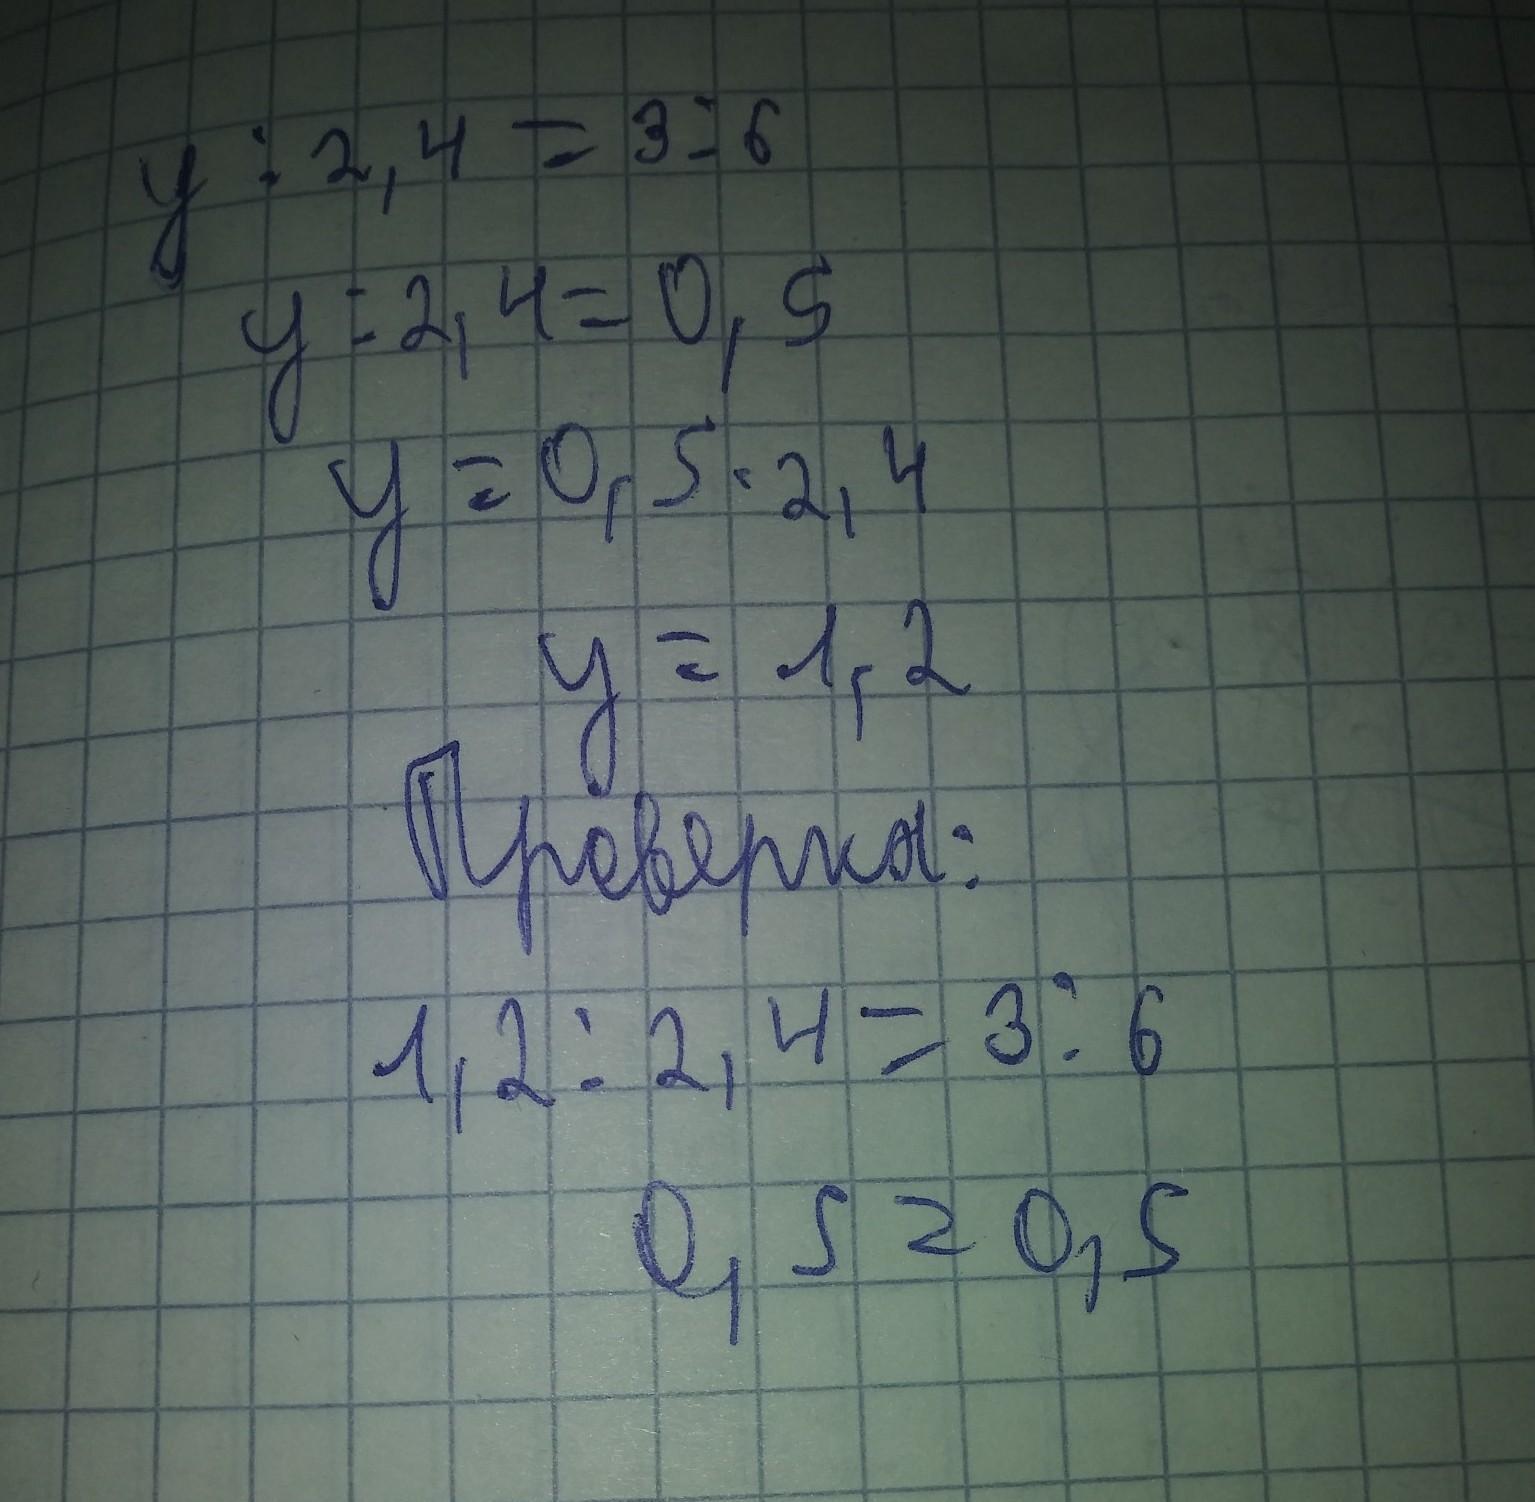 y : 2,4 = 3 : 6
y : 2,4 = 0,5
y = 0,5 · 2,4
y = 1,2
Проверка:
1,2 : 2,4 = 3 : 6
0,5 = 0,5